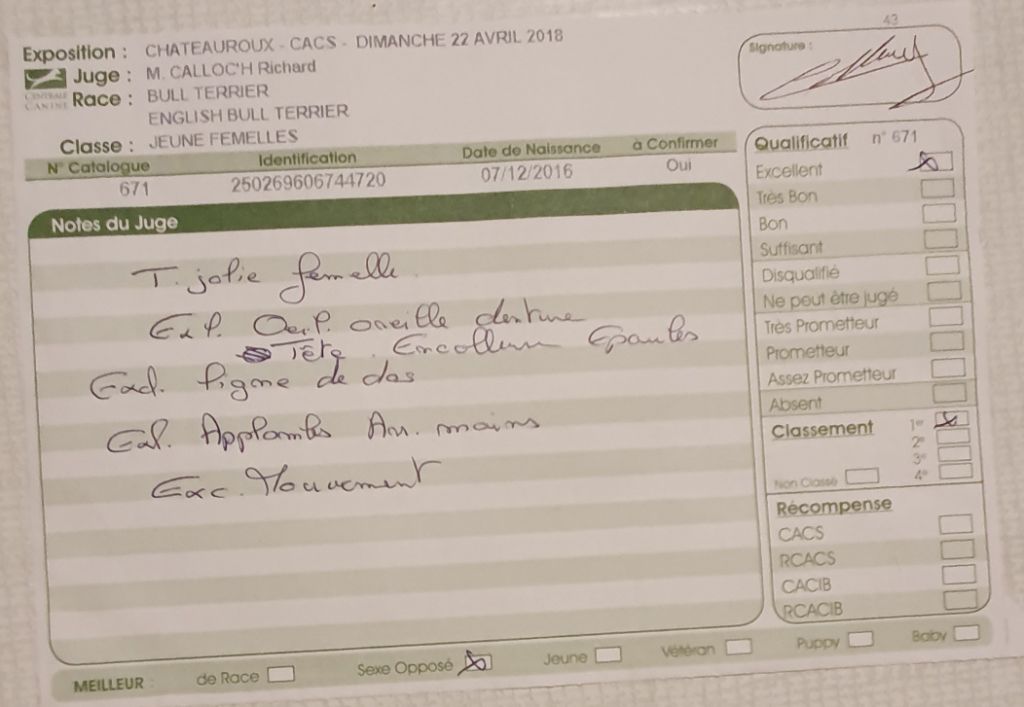 43
Exposition : CHATEAUROUX - CACS - DIMANCHE 22 AVRIL 2018
Juge : M. CALLOC'H Richard
CENTRALE CANINE
Race : BULL TERRIER
ENGLISH BULL TERRIER
Classe : JEUNE FEMELLES
Signature :
N° Catalogue Identification Date de Naissance à Confirmer
671 250269606744720 07/12/2016 Oui
Notes du Juge
T. jolie femelle
Ex P. Oeil. oreille denture
Tête. Encollure Epaules
Exd. ligne de dos
Exl. Applombs Arr. mains
Exc. Mouvement
Qualificatif n° 671
Excellent
Très Bon
Bon
Suffisant
Disqualifié
Ne peut être jugé
Très Prometteur
Prometteur
Assez Prometteur
Absent
Classement 1er
2e
3e
4e
Non Classé
Récompense
CACS
RCACS
CACIB
RCACIB
MEILLEUR : de Race Sexe Opposé Jeune Vétéran Puppy Baby